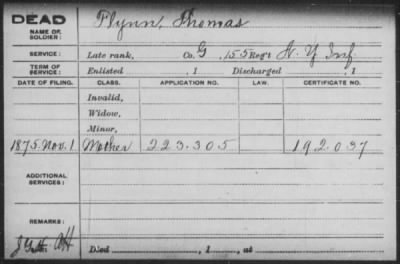 DEAD
NAME OF SOLDIER: Flynn, Thomas
SERVICE: Late rank, Co. G, 155 Reg't N. Y. Inf
TERM OF SERVICE: Enlisted , 1 Discharged , 1
DATE OF FILING. CLASS. APPLICATION NO. LAW. CERTIFICATE NO.
Invalid,
Widow,
Minor,
1875. Nov. 1 Mother 223.305 192.037
ADDITIONAL SERVICES:
REMARKS:
Died , 1 , at